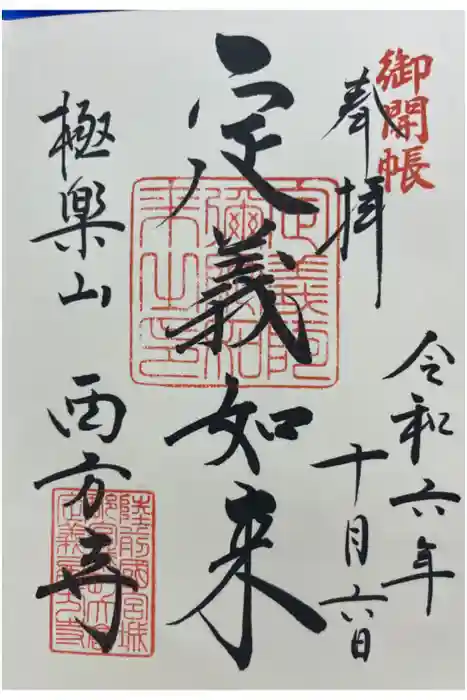 御開帳
奉拝
令和六年
十月六日
定義如来
極楽山
西方寺